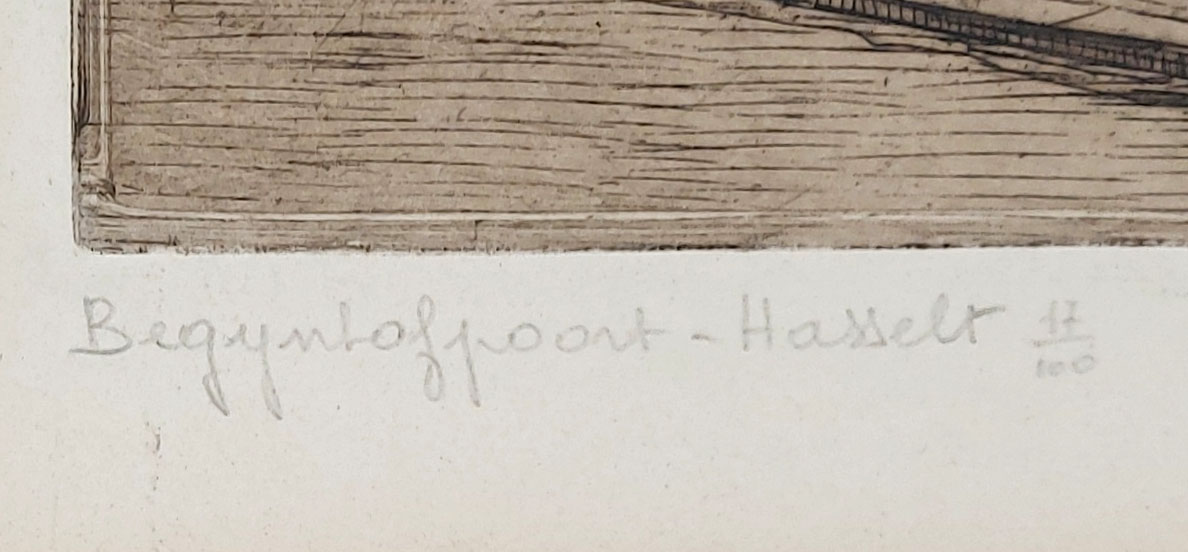 Begynhofpoort - Hasselt 17/100